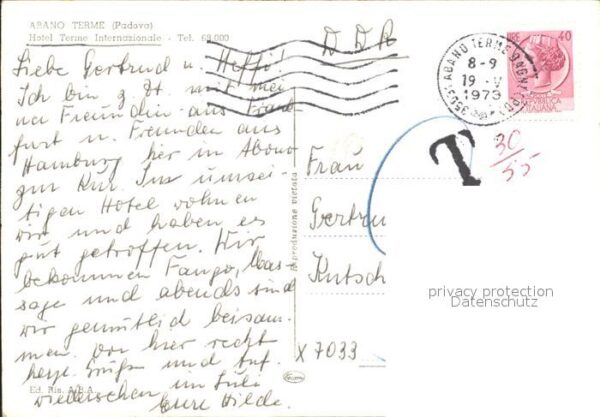 ABANO TERME (Padova)
Hotel Terme Internazionale - Tel. 69.000
Liebe Gertrud u. Heffi!
Ich bin z. Zt. mit mei-
ner Freundin aus Frank-
furt u. Freunden aus
Hamburg hier in Abano
zur Kur. Im umsei-
tigen Hotel wohnen
wir und haben es
gut getroffen. Wir
bekommen Fango, Mas-
sage und abends sind
wir gemütlich beisam-
men. Von hier recht
herzl. Grüße und auf
wiedersehen im Juli
Eure Hilde.
Ed. Ris. A.B.A.
Riproduzione vietata
DDR
35031 ABANO TERME
8-9
19 -V
1973
LIRE 40
REPUBBLICA
ITALIANA
T
30
55
Frau
Gertru
Kutsch
X 7033
privacy protection
Datenschutz